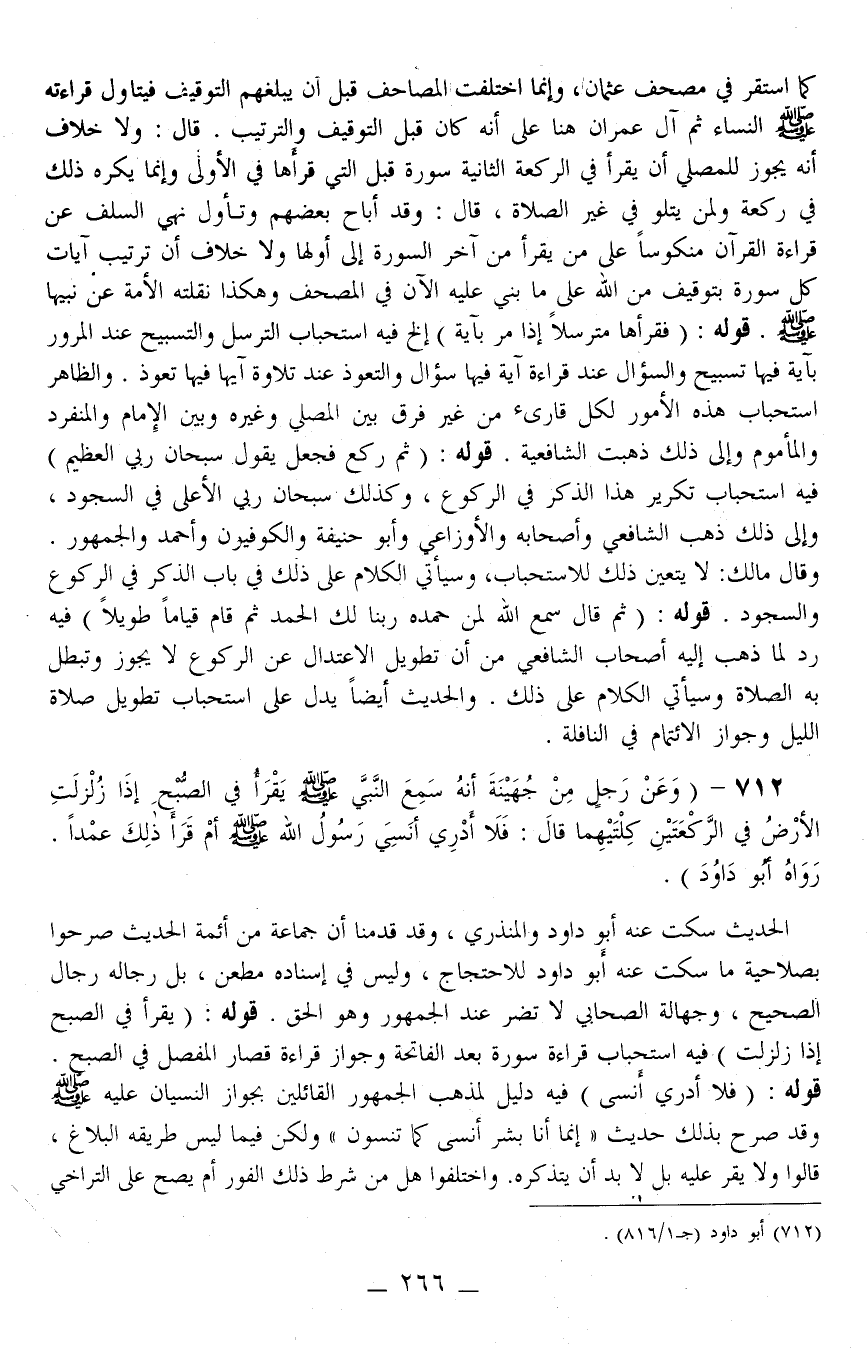 كما استقر في مصحف عثمان، وإنما اختلفت المصاحف قبل أن يبلغهم التوقيف فيتاول قراءته
ﷺ النساء ثم آل عمران هنا على أنه كان قبل التوقيف والترتيب . قال : ولا خلاف
أنه يجوز للمصلي أن يقرأ في الركعة الثانية سورة قبل التي قرأها في الأولى وإنما يكره ذلك
في ركعة ولمن يتلو في غير الصلاة ، قال : وقد أباح بعضهم وتأول نهي السلف عن
قراءة القرآن منكوساً على من يقرأ من آخر السورة إلى أولها ولا خلاف أن ترتيب آيات
كل سورة بتوقيف من الله على ما بني عليه الآن في المصحف وهكذا نقلته الأمة عن نبيها
ﷺ . قوله : ( فقرأها مترسلاً إذا مر بآية ) إلخ فيه استحباب الترسل والتسبيح عند المرور
بآية فيها تسبيح والسؤال عند قراءة آية فيها سؤال والتعوذ عند تلاوة آيها فيها تعوذ . والظاهر
استحباب هذه الأمور لكل قارىء من غير فرق بين المصلي وغيره وبين الإمام والمنفرد
والمأموم وإلى ذلك ذهبت الشافعية . قوله : ( ثم ركع فجعل يقول سبحان ربي العظيم )
فيه استحباب تكرير هذا الذكر في الركوع ، وكذلك سبحان ربي الأعلى في السجود ،
وإلى ذلك ذهب الشافعي وأصحابه والأوزاعي وأبو حنيفة والكوفيون وأحمد والجمهور .
وقال مالك: لا يتعين ذلك للاستحباب، وسيأتي الكلام على ذلك في باب الذكر في الركوع
والسجود . قوله : ( ثم قال سمع الله لمن حمده ربنا لك الحمد ثم قام قياماً طويلاً ) فيه
رد لما ذهب إليه أصحاب الشافعي من أن تطويل الاعتدال عن الركوع لا يجوز وتبطل
به الصلاة وسيأتي الكلام على ذلك . والحديث أيضاً يدل على استحباب تطويل صلاة
الليل وجواز الائتمام في النافلة .
٧١٢ - ( وَعَنْ رَجلٍ مِنْ جُهَيْنَةَ أنهُ سَمِعَ النَّبيَّ ﷺ يَقْرَأُ في الصُّبْحِ إذَا زُلْزِلَتِ
الأرْضُ في الرَّكْعَتَيْنِ كِلْتَيْهِما قالَ : فَلَا أَدْرِي أنَسِيَ رَسُولُ الله ﷺ أمْ قَرَأَ ذٰلِكَ عمْداً .
رَوَاهُ أبُو دَاوُدَ ) .
الحديث سكت عنه أبو داود والمنذري ، وقد قدمنا أن جماعة من أئمة الحديث صرحوا
بصلاحية ما سكت عنه أبو داود للاحتجاج ، وليس في إسناده مطعن ، بل رجاله رجال
الصحيح ، وجهالة الصحابي لا تضر عند الجمهور وهو الحق . قوله : ( يقرأ في الصبح
إذا زلزلت ) فيه استحباب قراءة سورة بعد الفاتحة وجواز قراءة قصار المفصل في الصبح .
قوله : ( فلا أدري أنسى ) فيه دليل لمذهب الجمهور القائلين بجواز النسيان عليه ﷺ
وقد صرح بذلك حديث « إنما أنا بشر أنسى كما تنسون » ولكن فيما ليس طريقه البلاغ ،
قالوا ولا يقر عليه بل لا بد أن يتذكره. واختلفوا هل من شرط ذلك الفور أم يصح على التراخي
(٧١٢) أبو داود (جـ٨١٦/١) .
ــ ٢٦٦ ــ